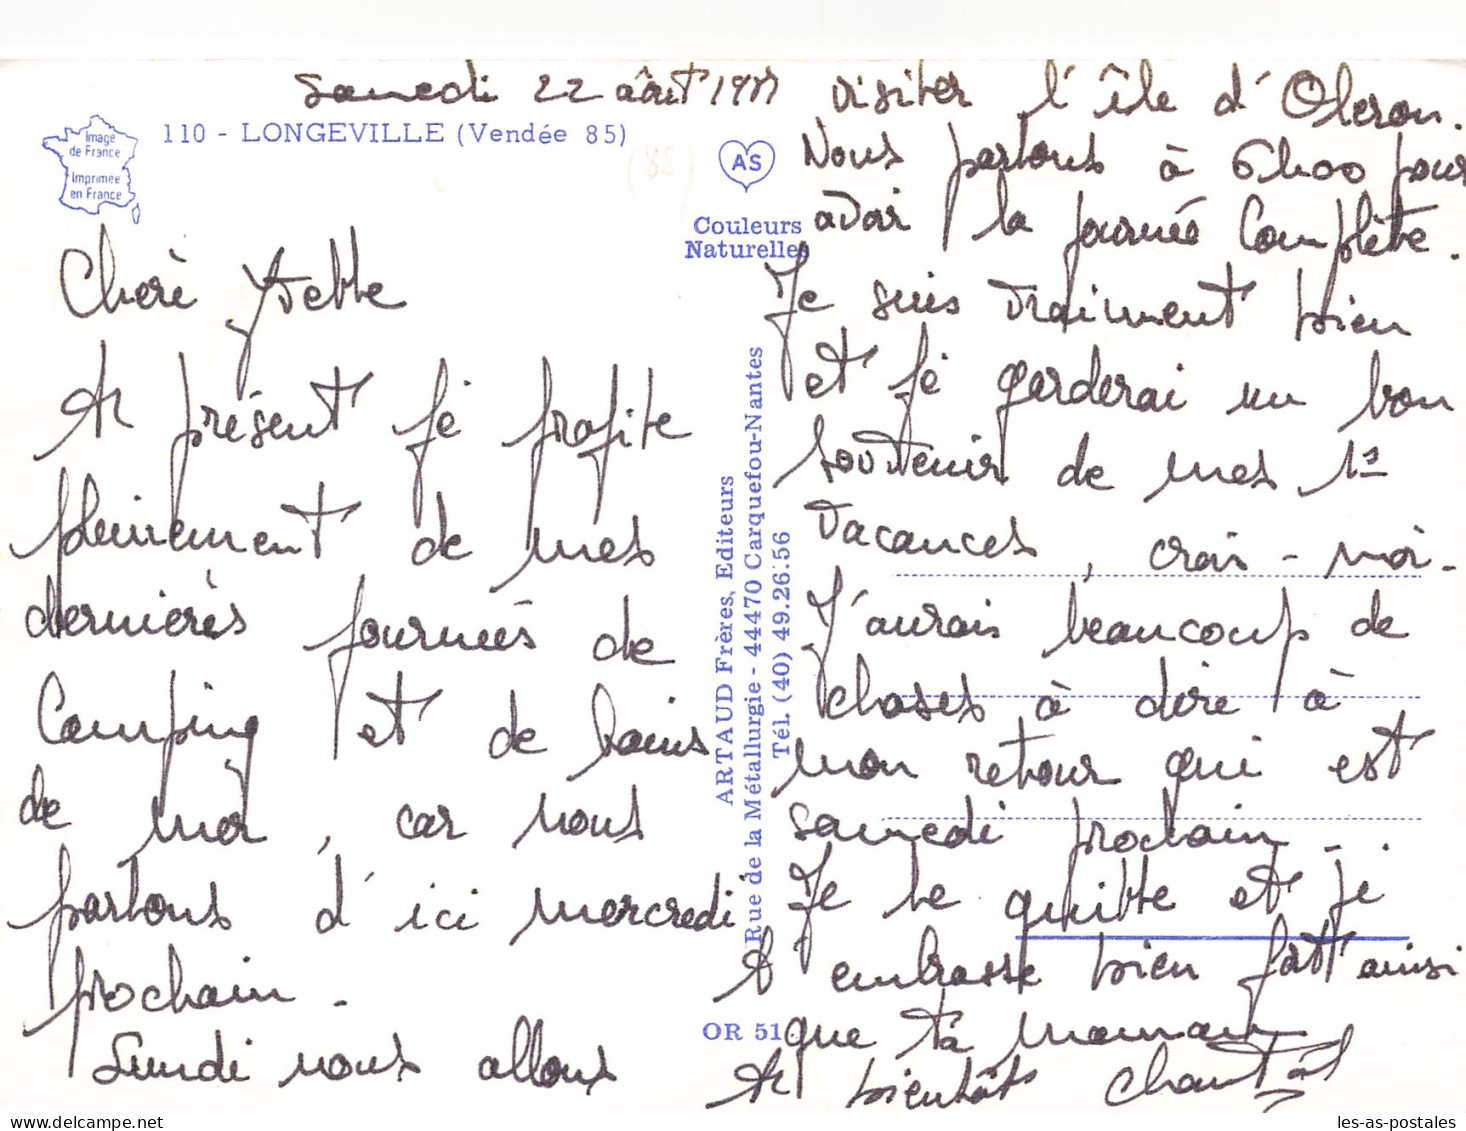 Samedi 22 août 19
Image
de France
Imprimée
en France
110 - LONGEVILLE (Vendée 85)
(85)
Cherè Yvette
A présent jé profite
pleinement de mes
dernièrès journeés de
Camping et de bains
de mer, car nous
partons d'ici mercredi
prochain.
Lundi nous allons
AS
Couleurs
Naturelles
ARTAUD Frères, Editeurs
Rue de la Métallurgie - 44470 Carquefou-Nantes
Tél. (40) 49.26.56
OR 51
visiter l'île d'Oleron.
Nous partons à 6h00 pour
avoir la journeé Complète.
Je suis vraiment bien
et jé garderai un bon
souvenir de mes 1s
vacances, crois-moi.
J'aurais beaucoup de
choses à dire à
mon retour qui est
samedi prochain.
Je te quitte et je
t'embrasse bien fort ainsi
que ta maman
A bientôt Chantal
les-as-postales